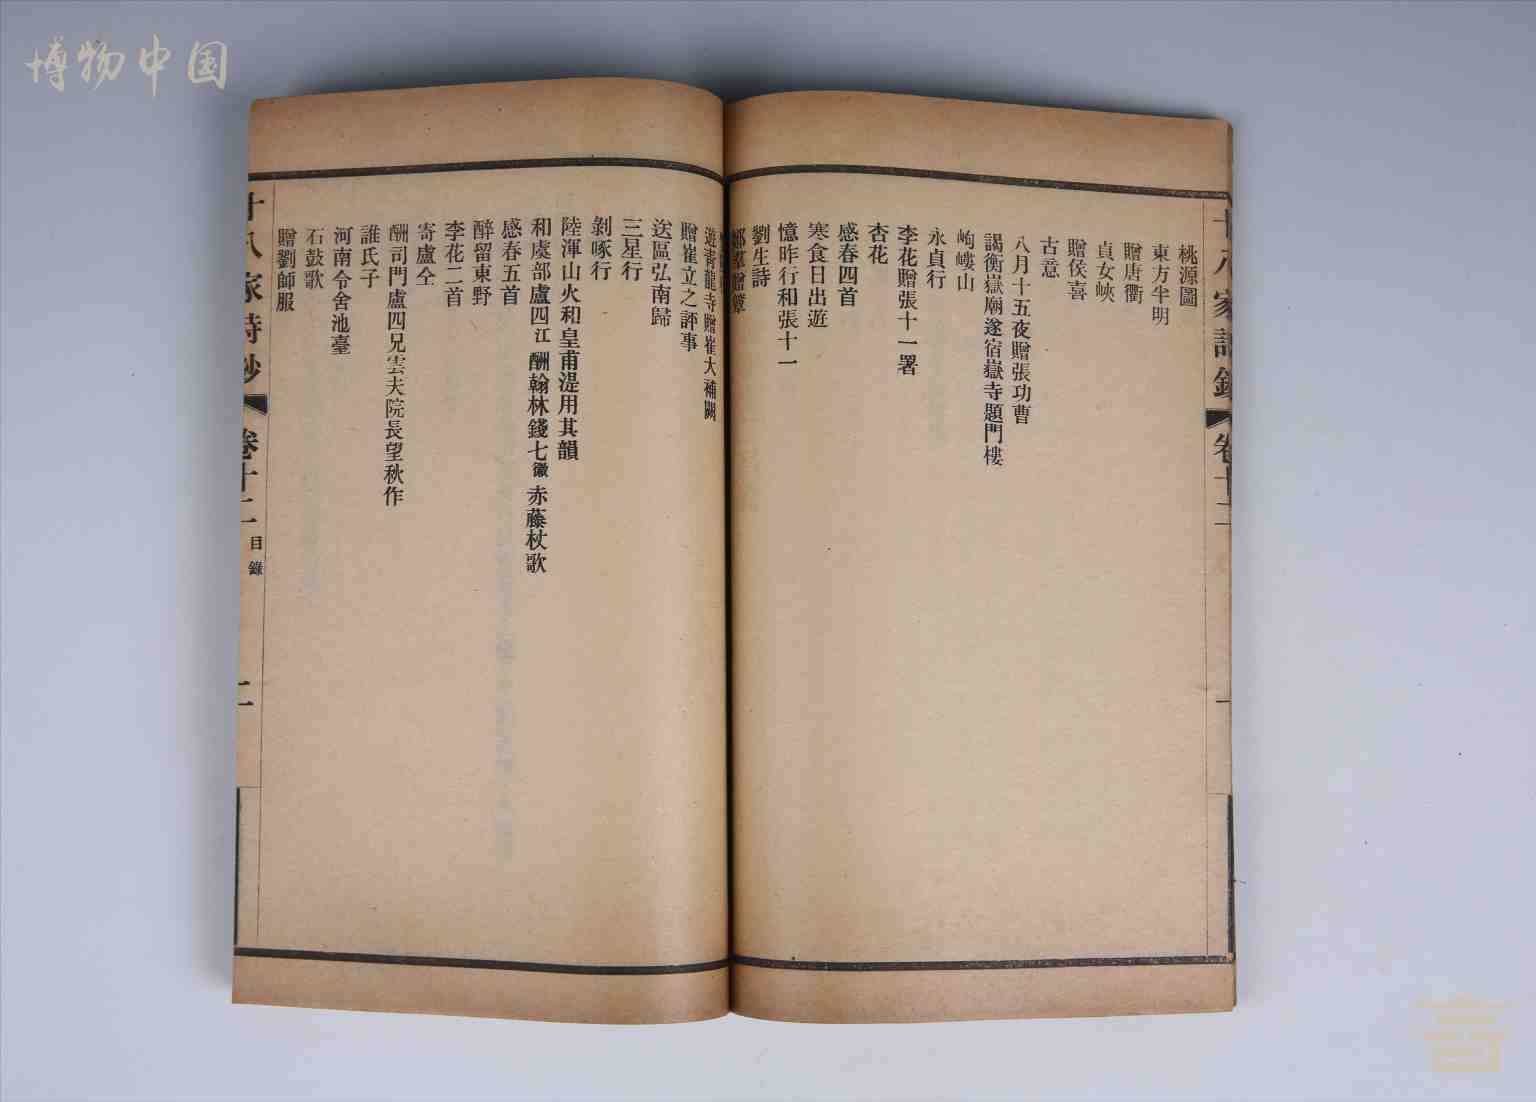 博物中国
桃源圖
東方半明
贈唐衢
貞女峽
贈侯喜
古意
八月十五夜贈張功曹
謁衡嶽廟遂宿嶽寺題門樓
岣嶁山
永貞行
李花贈張十一署
杏花
感春四首
寒食日出遊
憶昨行和張十一
劉生詩
鄭羣贈簟
遊青龍寺贈崔大補闕
贈崔立之評事
送區弘南歸
三星行
剝啄行
陸渾山火和皇甫湜用其韻
和虞部盧四汀酬翰林錢七徽赤藤杖歌
感春五首
醉留東野
李花二首
寄盧仝
酬司門盧四兄雲夫院長望秋作
誰氏子
河南令舍池臺
石鼓歌
贈劉師服
十八家詩鈔 卷十二 目錄 二